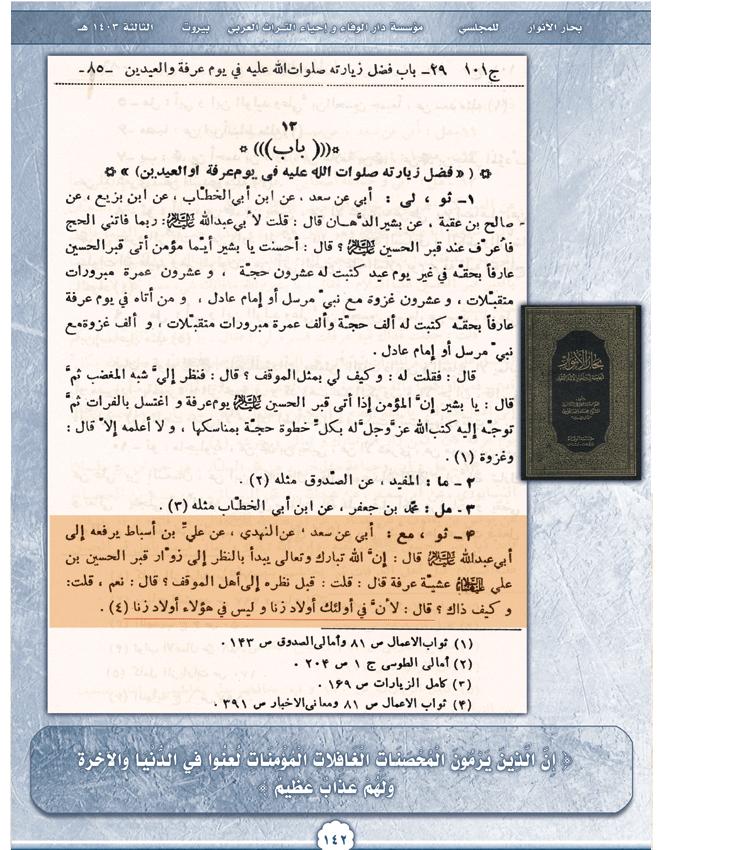 بحار الأنوار للمجلسي مؤسسة دار الوفاء و إحياء التراث العربي بيروت الثالثة ١٤٠٣ هـ
ج١٠١ ٢٩ـ باب فضل زيارته صلوات الله عليه في يوم عرفة والعيدين ـ٨٥ـ
١٣
(((باب)))
( «فضل زيارته صلوات الله عليه فى يوم عرفة أو العيدين» )
١ـ ثو ، لى : أبي عن سعد ، عن ابن أبي الخطّاب ، عن ابن بزيع ، عن
صالح بن عقبة ، عن بشير الدَّهّان قال : قلت لأبي عبدالله عليه السلام : ربما فاتني الحج
فاُعرِّف عند قبر الحسين عليه السلام ؟ قال : أحسنت يا بشير أيّما مؤمن أتى قبر الحسين
عارفاً بحقّه في غير يوم عيد كتبت له عشرون حجّة ، و عشرون عمرة مبرورات
متقبّلات ، و عشرون غزوة مع نبيّ مرسل أو إمام عادل ، و من أتاه في يوم عرفة
عارفاً بحقّه كتبت له ألف حجّة وألف عمرة مبرورات متقبّلات ، و ألف غزوة مع
نبيّ مرسل أو إمام عادل .
قال : فقلت له : و كيف لي بمثل الموقف ؟ قال : فنظر إليَّ شبه المغضب ثمَّ
قال : يا بشير إنَّ المؤمن إذا أتى قبر الحسين عليه السلام يوم عرفة و اغتسل بالفرات ثمَّ
توجّه إليه كتب الله عزَّوجلَّ له بكلِّ خطوة حجّة بمناسكها ، و لا أعلمه إلاّ قال :
وغزوة (١) .
٢ ـ ما : المفيد ، عن الصّدوق مثله (٢) .
٣ـ مل : محمّد بن جعفر ، عن ابن أبي الخطّاب مثله (٣) .
۴ـ ثو ، مع : أبي عن سعد ، عن النهدي ، عن عليِّ بن أسباط يرفعه إلى
أبي عبدالله عليه السلام قال : إنَّ الله تبارك وتعالى يبدأ بالنظر إلى زوّار قبر الحسين بن
علي عليهما السلام عشيّة عرفة قال : قلت : قبل نظره إلى أهل الموقف ؟ قال : نعم ، قلت :
و كيف ذاك ؟ قال : لأنَّ في أولئك أولاد زنا و ليس في هؤلاء أولاد زنا (٤) .
(١) ثواب الاعمال ص ٨١ وأمالى الصدوق ص ١٤٣ .
(٢) أمالى الطوسى ج ١ ص ٢٠٤ .
(٣) كامل الزيارات ص ١٦٩ .
(۴) ثواب الاعمال ص ٨١ ومعانى الاخبار ص ٣٩١ .
بحار الأنوار
﴿ إِنَّ الَّذِينَ يَرْمُونَ الْمُحْصَنَاتِ الْغَافِلَاتِ الْمُؤْمِنَاتِ لُعِنُوا فِي الدُّنْيَا وَالْآخِرَةِ
وَلَهُمْ عَذَابٌ عَظِيمٌ ﴾
١٤٢